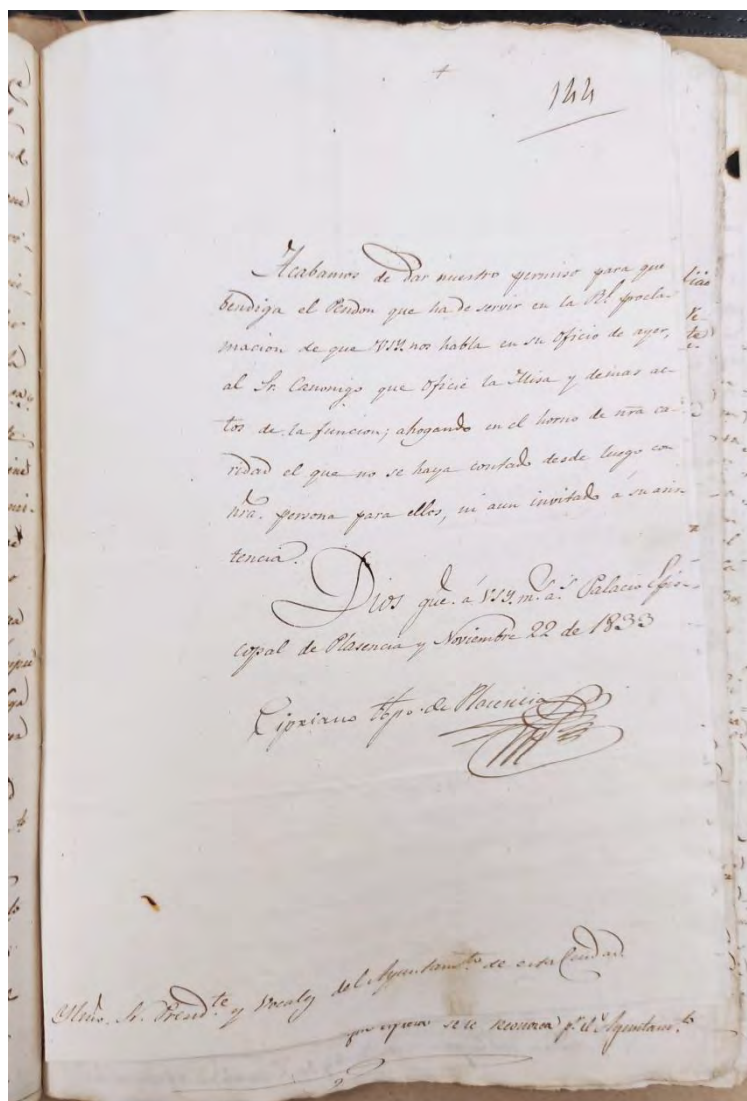 +
144
Acabamos de dar nuestro permiso para que
bendiga el Pendon que ha de servir en la Rl. procla-
macion de que VSY. nos habla en su Oficio de ayer,
al Sr. Canonigo que Oficie la Misa y demas ac-
tos de la funcion; ahogando en el horno de nra ca-
ridad el que no se haya contado desde luego con
nra. persona para ellos, ni aun invitado á su asis-
tencia.
Dios gue. á VSY. ms. as. Palacio Epis-
copal de Plasencia y Noviembre 22 de 1833
Cipriano Obpo. de Plasencia
Yllmo. Sr. Presidte. y Vocales del Ayuntamto. de esta Ciudad.
se le reconozca pr. el Ayuntamto.